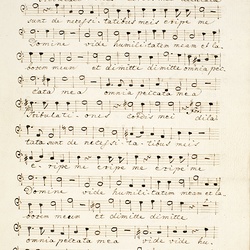 sunt de necessitatibus meis eripe me
Domine vide humilitatem meam et la
borem meum et dimitte dimitte omnia pec
cata mea omnia peccata mea
Tribulati ones cordis mei dila
tata sunt de necessi ta tibus meis
e ripe me eripe me eripe me
Domine vide humilitatem meam et la
borem meum et dimitte dimitte
omnia peccata mea vide hu